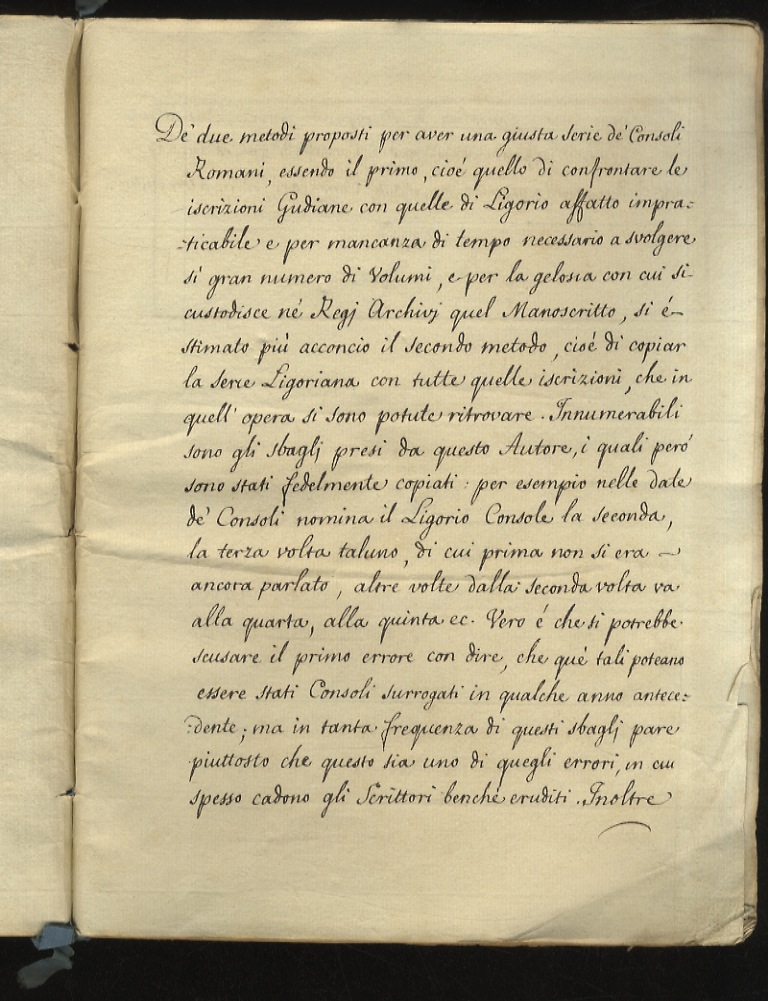 De' due metodi proposti per aver una giusta serie de' Consoli
Romani, essendo il primo, cioé quello di confrontare le
iscrizioni Gudiane con quelle di Ligorio affatto impra=
=ticabile e per mancanza di tempo necessario a svolgere
sì gran numero di Volumi, e per la gelosia con cui si
custodisce né Regj Archivj quel Manoscritto, si é
stimato più acconcio il secondo metodo, cioé di copiar
la serie Ligoriana con tutte quelle iscrizioni, che in
quell' opera si sono potute ritrovare. Innumerabili
sono gli sbaglj presi da questo Autore, i quali peró
sono stati fedelmente copiati: per esempio nelle date
de' Consoli nomina il Ligorio Console la seconda,
la terza volta taluno, di cui prima non si era ~
ancora parlato, altre volte dalla seconda volta va
alla quarta, alla quinta ec. Vero é che si potrebbe
scusare il primo errore con dire, che qué tali poteano
essere stati Consoli surrogati in qualche anno antece=
=dente; ma in tanta frequenza di questi sbaglj pare
piuttosto che questo sia uno di quegli errori, in cui
spesso cadono gli Scrittori benché eruditi. Inoltre